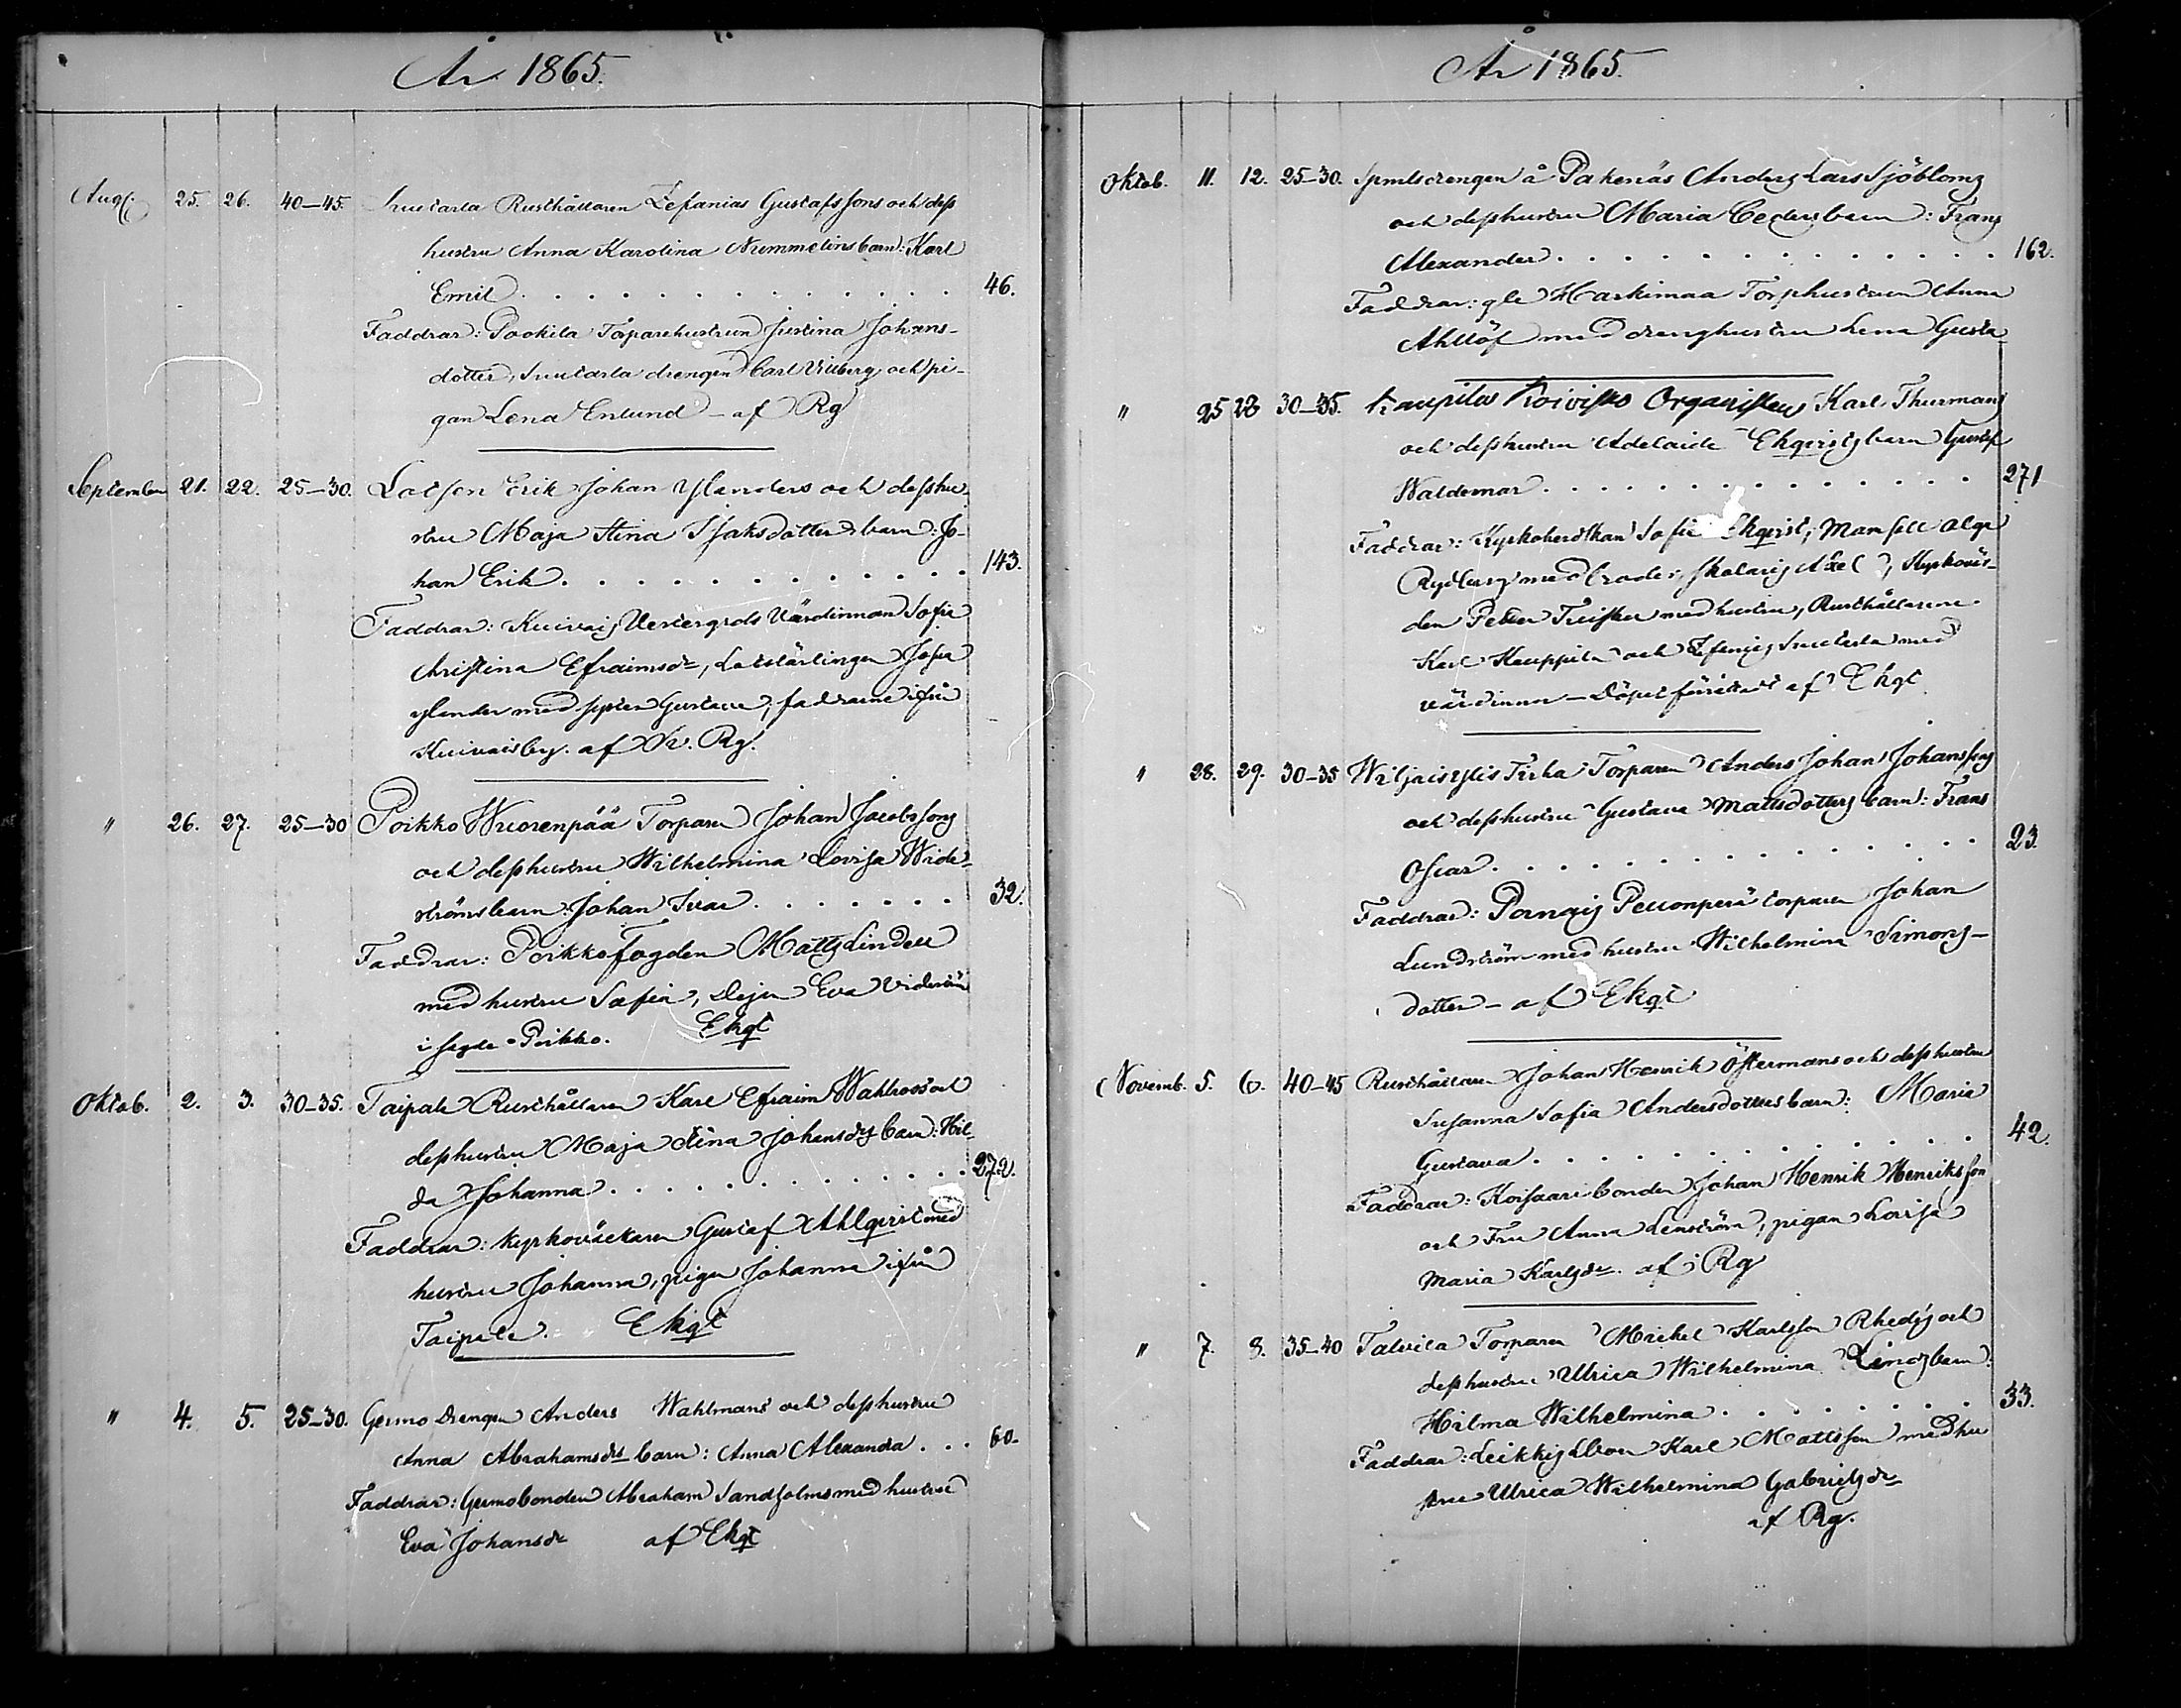 År 1865.
Aug. 25. 26. 40-45. Suutarla Rusthållaren Zefanias Gustafssons och dess
hustru Anna Karolina Nummelins barn: Karl
Emil . . . . . . . . . . . . . 46.
Faddrar: Pookila Torparehustrun Justina Johans-
dotter, Suutarla drengen Carl Viberg och pi-
gan Lena Enlund – af Rg
September 21. 22. 25-30. Lotsen Erik Johan Ylanders och dess hu-
stru Maja Stina Isaksdotters barn: Jo-
han Erik . . . . . . . . . . . . 143.
Faddrar: Kuivais Vestergrds Värdinnan Sofia
Christina Efraimsdr, Lotslärlingen Josua
Ylander med syster Gustava, faddrarne ifrån
Kuivais by. af Rg.
" 26. 27. 25-30 Poikko Wuorenpää Torparen Johan Jacobssons
och dess hustru Wilhelmina Lovisa Wide-
ströms barn: Johan Ivar . . . . . . . 32.
Faddrar: Poikko fogden Matts Lindell
med hustru Sofia, Dejan Eva Videström
i sagde Poikko. Ekqt
Oktob. 2. 3. 30-35. Taipale Rusthållaren Karl Efraim Wahlroos och
dess hustru Maja Stina Johansdrs barn: Hil-
da Johanna . . . . . . . . . . . 272.
Faddrar: kyrkoväktaren Gustaf Ahlqvist med
hustru Johanna, pigan Johanna ifrån
Taipale. Ekqt
" 4. 5. 25-30. Germo Drengen Anders Wahlmans och dess hustru
Anna Abrahamsdrs barn: Anna Alexandra . . . 60.
Faddrar: Germo bonden Abraham Sandholms med hustru
Eva Johansdr af Ekqt
År 1865.
Oktob. 11. 12. 25-30. Spmlsdrengen å Pakenäs Anders Lars Sjöbloms
och dess hustru Maria Ceders barn: Frans
Alexander . . . . . . . . . . . . . 162.
Faddrar: gle Harkimaa Torphustrun Anna
Ahllöf med drenghustru Lena Gusta
" 25 28 30-35. Kaupilas Koivisto Organisten Karl Thurmans
och dess hustru Adelaide Ekqvists barn Gustaf
Waldemar . . . . . . . . . . . . . 271
Faddrar: Kyrkoherdskan Sofie Ekqvist, Mamsell Olga
Rydberg med broder Axel, Kyrkovär-
den Petter med hustru, Rusthållarene
Karl Kauppila och Zefanias Suutarla med
värdinnor – Döpet förrättadt af Ekqt
" 28. 29. 30-35 Wiljais Ylis Torparen Anders Johan Johanssons
och dess hustru Gustava Mattsdotters barn: Frans
Oscar . . . . . . . . . . . . . . 23.
Faddrar: Pornais torparen Johan
Lundström med hustru Wilhelmina Simons-
dotter – af Ekqt
Novemb. 5. 6. 40-45 Rusthållaren Johan Henrik Östermans och dess hustru
Susanna Sofia Andersdotters barn: Maria
Gustava . . . . . . . . . . . . . 42.
Faddrar: Koisaari bonden Johan Henrik Henriksson
och Fru Anna Lenström, pigan Lovisa
Maria Karlsdr. af Rg
" 7. 8. 35-40 Talvila Torparen Michel Karlsson Rheds och
dess hustru Ulrica Wilhelmina Linds barn:
Hilma Wilhelmina . . . . . . . . . 33.
Faddrar: Karl Mattsson med hu
stru Ulrica Wilhelmina Gabrielsdr
af Rg.